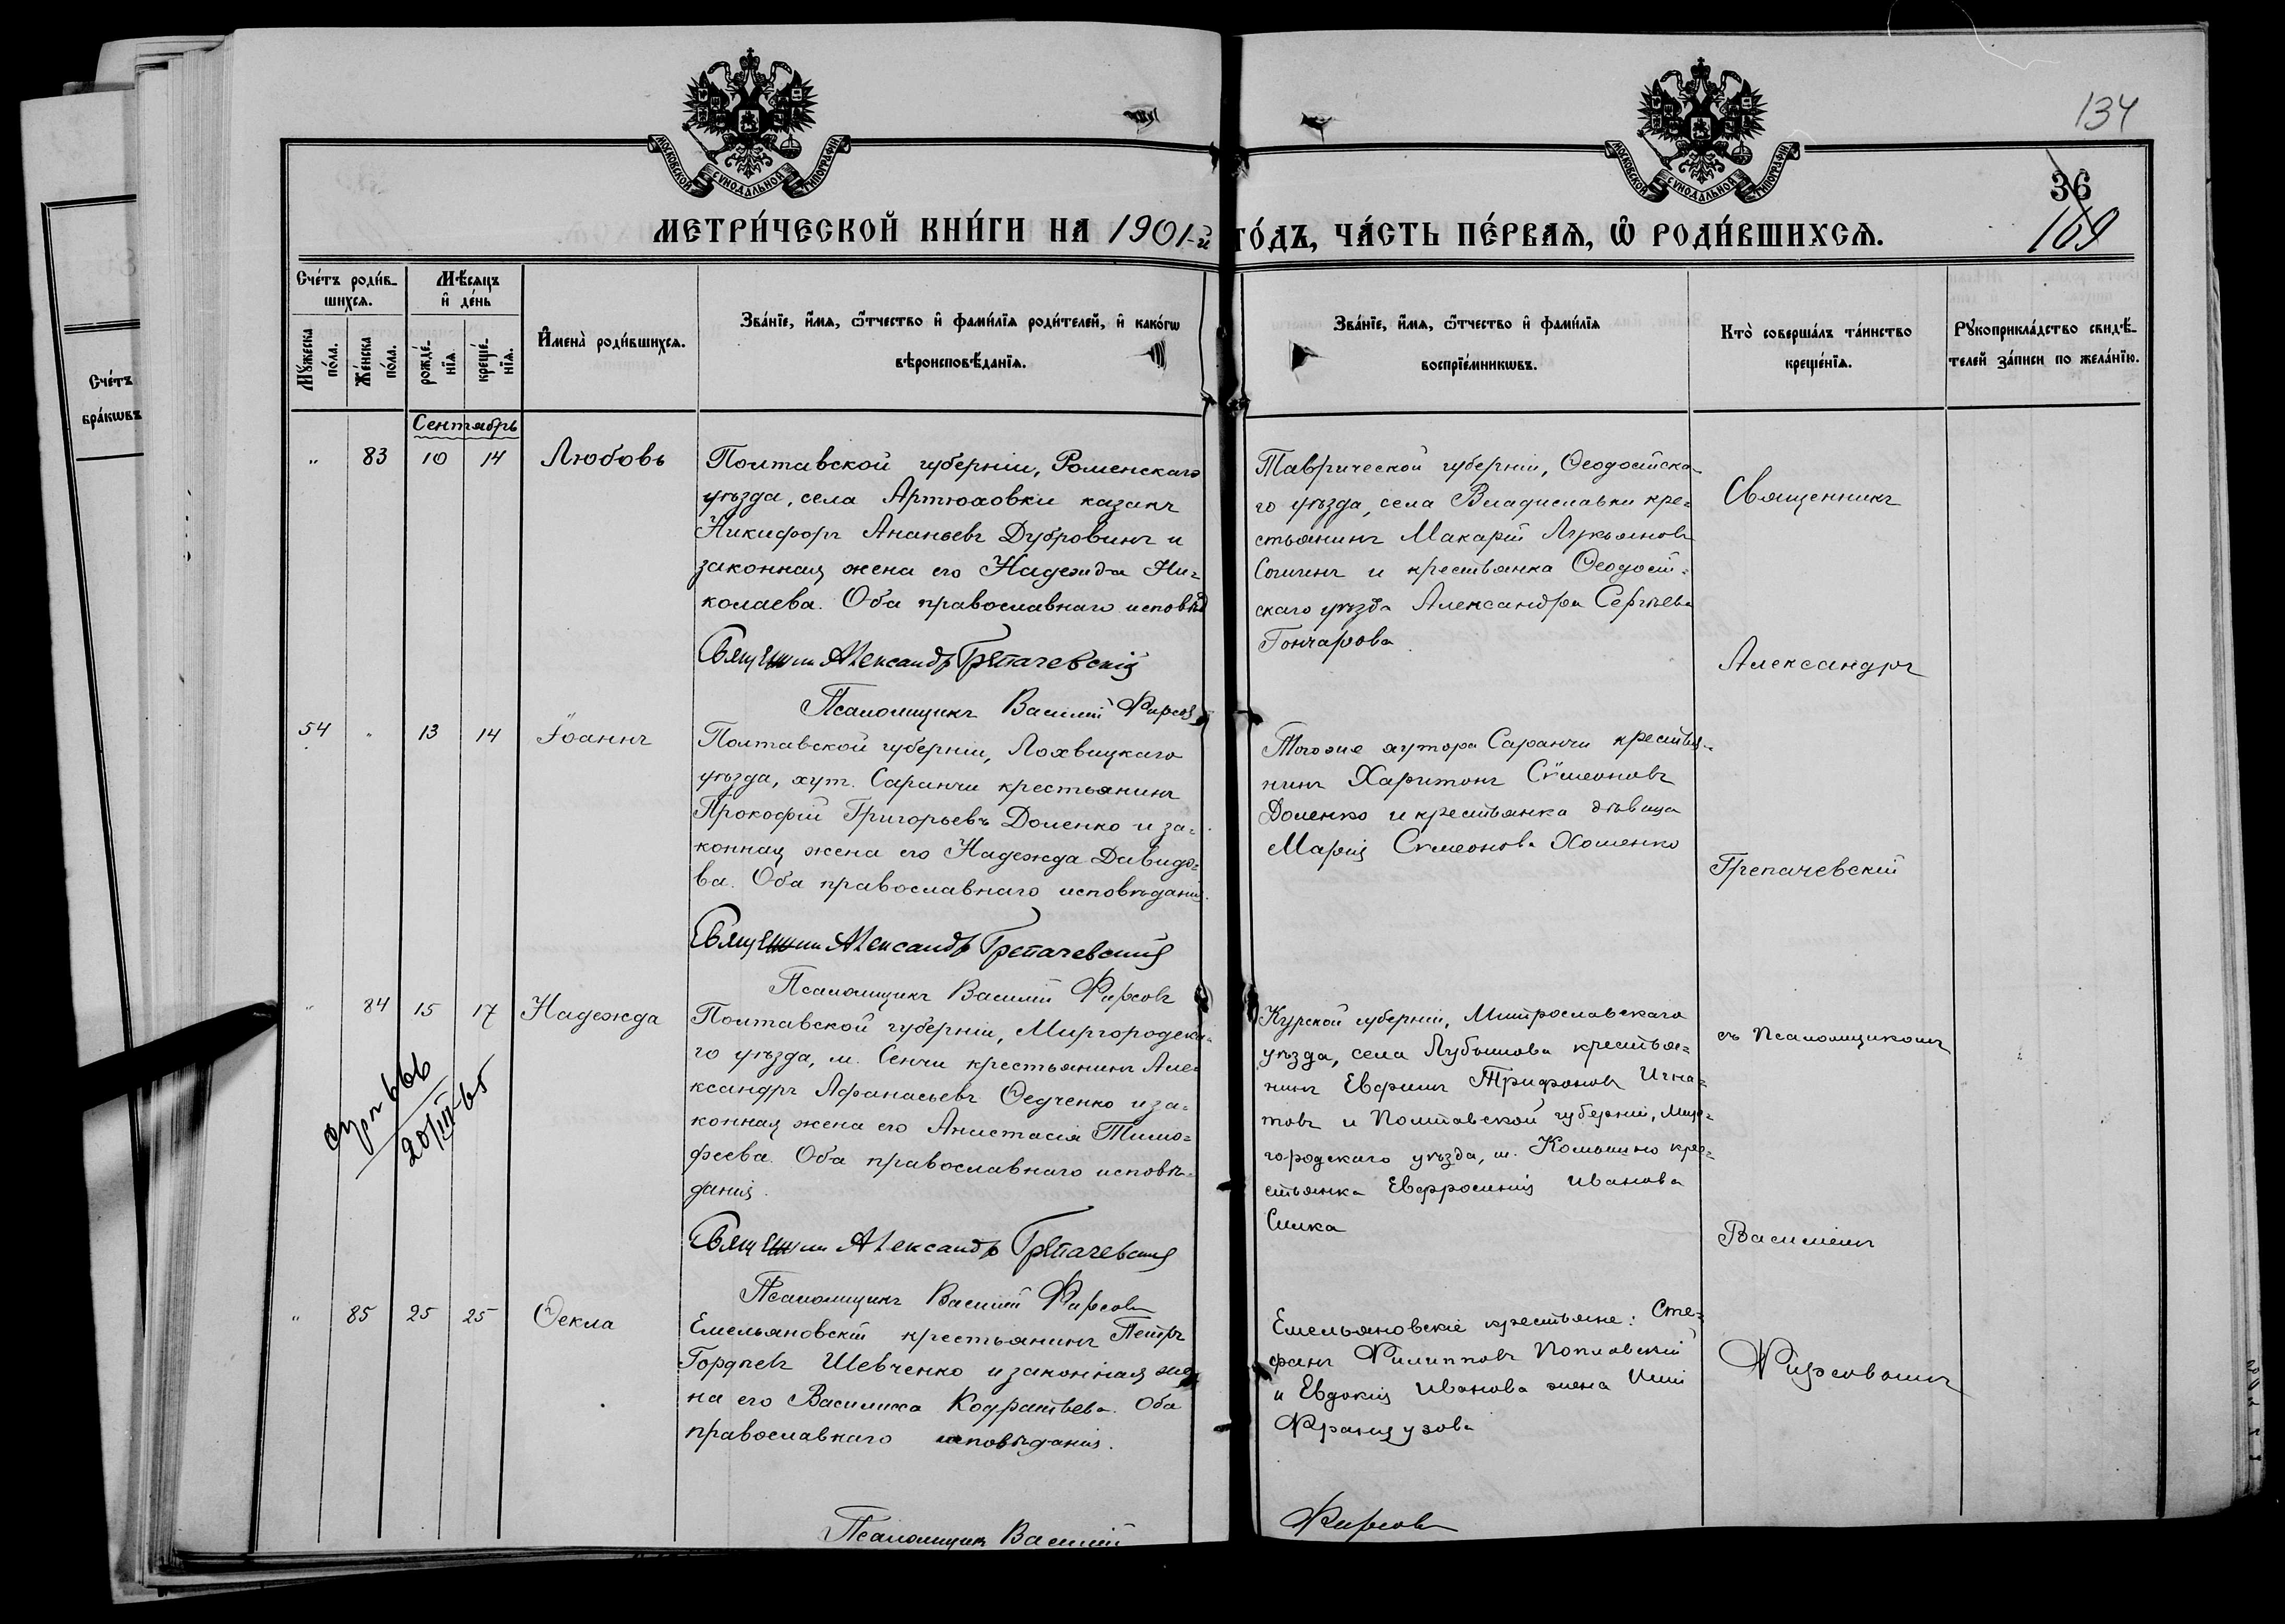 134
36
169
МОСКОВСКОЙ СѴНОДАЛЬНОЙ ТИПОГРАФІИ
МОСКОВСКОЙ СѴНОДАЛЬНОЙ ТИПОГРАФІИ
МЕТРИ́ЧЕСКОЙ КНИ́ГИ НА 1901-й ГО́ДЪ, ЧА́СТЬ ПЕ́РВАЯ, Ѡ РОДИ́ВШИХСЯ.
Сче́тъ
бра́кωвъ
Сче́тъ роди́в-
шихся.
Мꙋ́жеска по́ла.
Же́нска по́ла.
Мѣ́сяцъ
и҆ де́нь
рожде́-
нїя.
креще́-
нїя.
И҆мена̀ роди́вшихся.
Зва́нїе, и҆́мя, ѻ҆́тчество и҆ фами́лїя роди́телей, и҆ како́гω
вѣроисповѣ́данїя.
Зва́нїе, и҆́мя, ѻ҆́тчество и҆ фами́лїя
воспрїе́мникωвъ.
Кто̀ соверша́лъ та́инство
креще́нїя.
Рꙋкоприкла́дство свидѣ́-
телей за́писи по жела́нїю.
Сентябрь
" 83 10 14 Любовь
Полтавской губерніи, Роменскаго
уѣзда, села Артюховки казакъ
Никифоръ Ананьевъ Дубровинъ и
законная жена его Надежда Ни-
колаева. Оба православнаго исповѣд
Священникъ Александръ Грепачевскій
Псаломщикъ Василій Фирсовъ
Таврической губерніи, Ѳеодосійска-
го уѣзда, села Владиславки кре-
стьянинъ Макарій Лукьяновъ
и крестьянка Ѳеодосій-
скаго уѣзда Александра Сергѣева
Гончарова
Священникъ
Александръ
54 " 13 14 Іоаннъ
Полтавской губерніи, Лохвицкаго
уѣзда, хут. Саранчи крестьянинъ
Прокофій Григорьевъ Доленко и за-
конная жена его Надежда Давидо-
ва. Оба православнаго исповѣданія.
Священникъ Александръ Грепачевскій
Псаломщикъ Василій Фирсовъ
Тогоже хутора Саранчи крестья-
нинъ Харитонъ Сѵмеоновъ
Доленко и крестьянка дѣвица
Марія Сѵмеонова Хоменко
Грепачевскій
" 84 15 17 Надежда
20/III-65
Полтавской губерніи, Миргородска-
го уѣзда, м. Сенчи крестьянинъ Але-
ксандръ Аѳанасьевъ Ѳедченко и за-
конная жена его Анастасія Тимо-
феева. Оба православнаго исповѣ-
данія.
Священникъ Александръ Грепачевскій
Псаломщикъ Василій Фирсовъ
Курской губерніи,
уѣзда, села крестья-
нинъ Ефимъ Трифоновъ Игна-
товъ и Полтавской губерніи, Мир-
городскаго уѣзда, м. Комышно кре-
стьянка Евфросинія Иванова
съ псаломщикомъ
Василіемъ
" 85 25 25 Ѳекла
Емельяновскій крестьянинъ Петръ
Гордѣевъ Шевченко и законная же-
на его Василисса Кодратьева. Оба
православнаго исповѣданія.
Псаломщикъ Василій Фирсовъ
Емельяновскіе крестьяне: Сте-
фанъ Филипповъ Попловскій
и Евдокія Иванова жена
Французова
Фирсовымъ